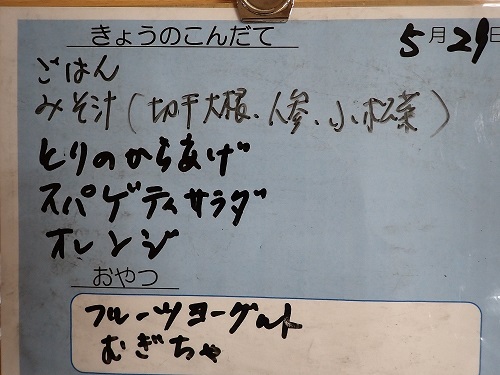 きょうのこんだて
5月29日
ごはん
みそ汁(切干大根、人参、小松菜)
とりのからあげ
スパゲティサラダ
オレンジ
おやつ
フルーツヨーグルト
むぎちゃ